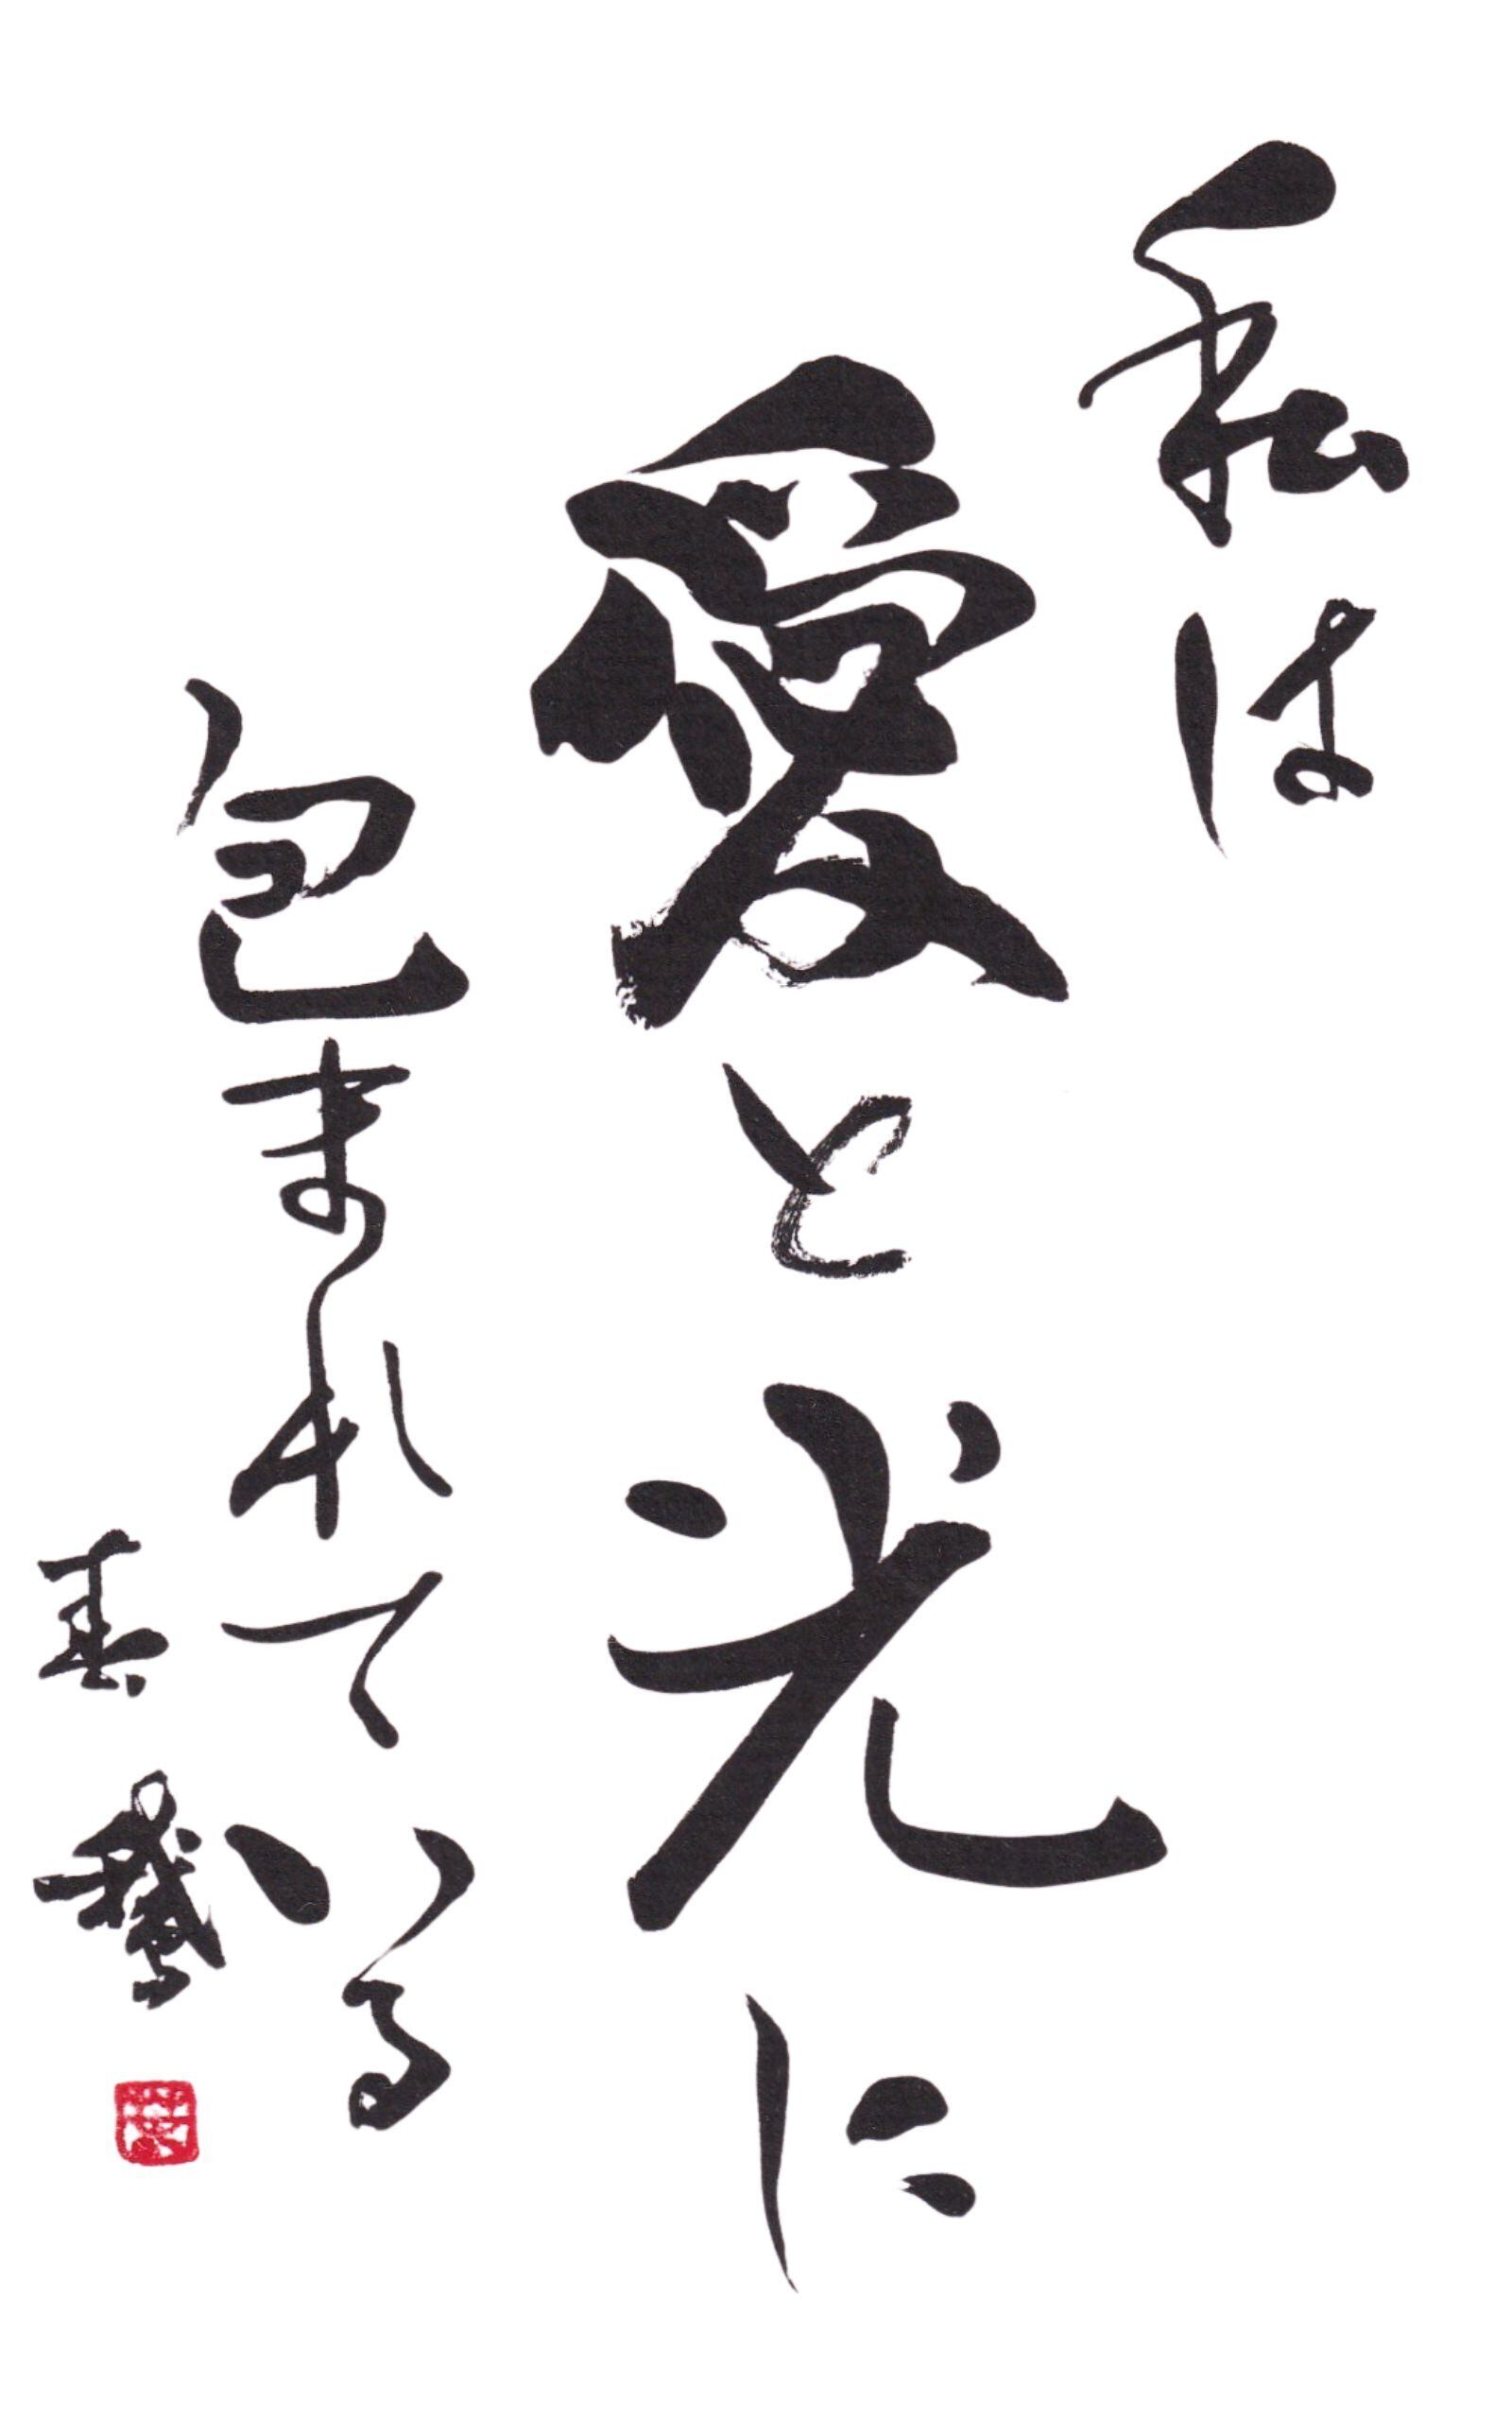 私は
愛と光に
包まれている
春鵞